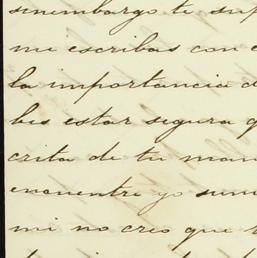 sinembargo te sup
me escribas con
la importancia d
bes estar segura q
crita de tu man
encuentre yo sum
mi no creo que